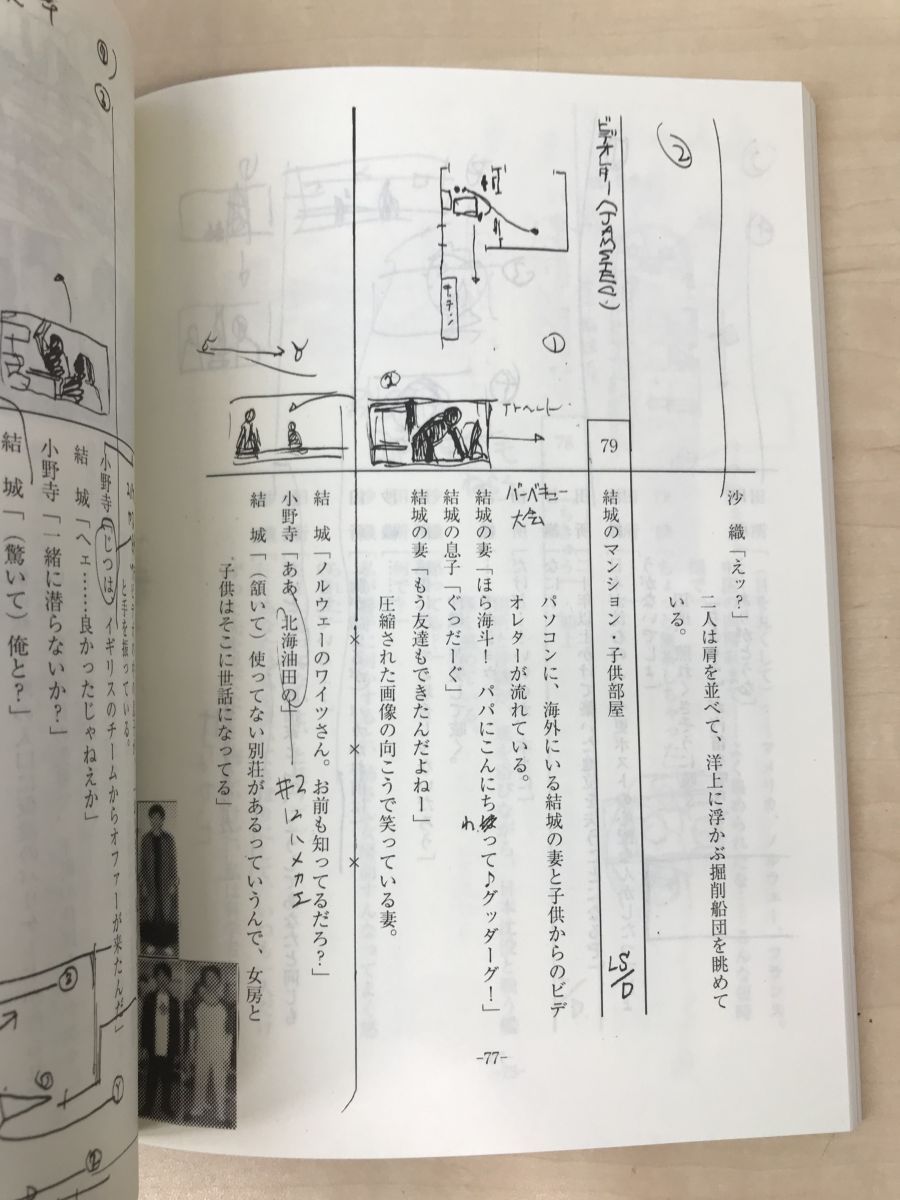 沙 織「えッ?」
二人は肩を並べて、洋上に浮かぶ掘削船団を眺めて
いる。
②
79
結城のマンション・子供部屋
LS/D
パソコンに、海外にいる結城の妻と子供からのビデ
オレターが流れている。
①
バーベキュー
大会
結城の妻「ほら海斗! パパにこんにちわって♪グッダーグ!」
結城の息子「ぐっだーぐ」
結城の妻「もう友達もできたんだよねー」
圧縮された画像の向こうで笑っている妻。
②
× × ×
結 城「ノルウェーのワイツさん。お前も知ってるだろ?」
小野寺「ああ、北海油田の」
#2 はハメカエ
結 城「(頷いて)使ってない別荘があるっていうんで、女房と
子供はそこに世話になってる」
-77-
と手を振っている。
小野寺「じつは、イギリスのチームからオファーが来たんだ」
結 城「ヘェ……良かったじゃねえか」
小野寺「一緒に潜らないか?」
結 城「(驚いて)俺と?」